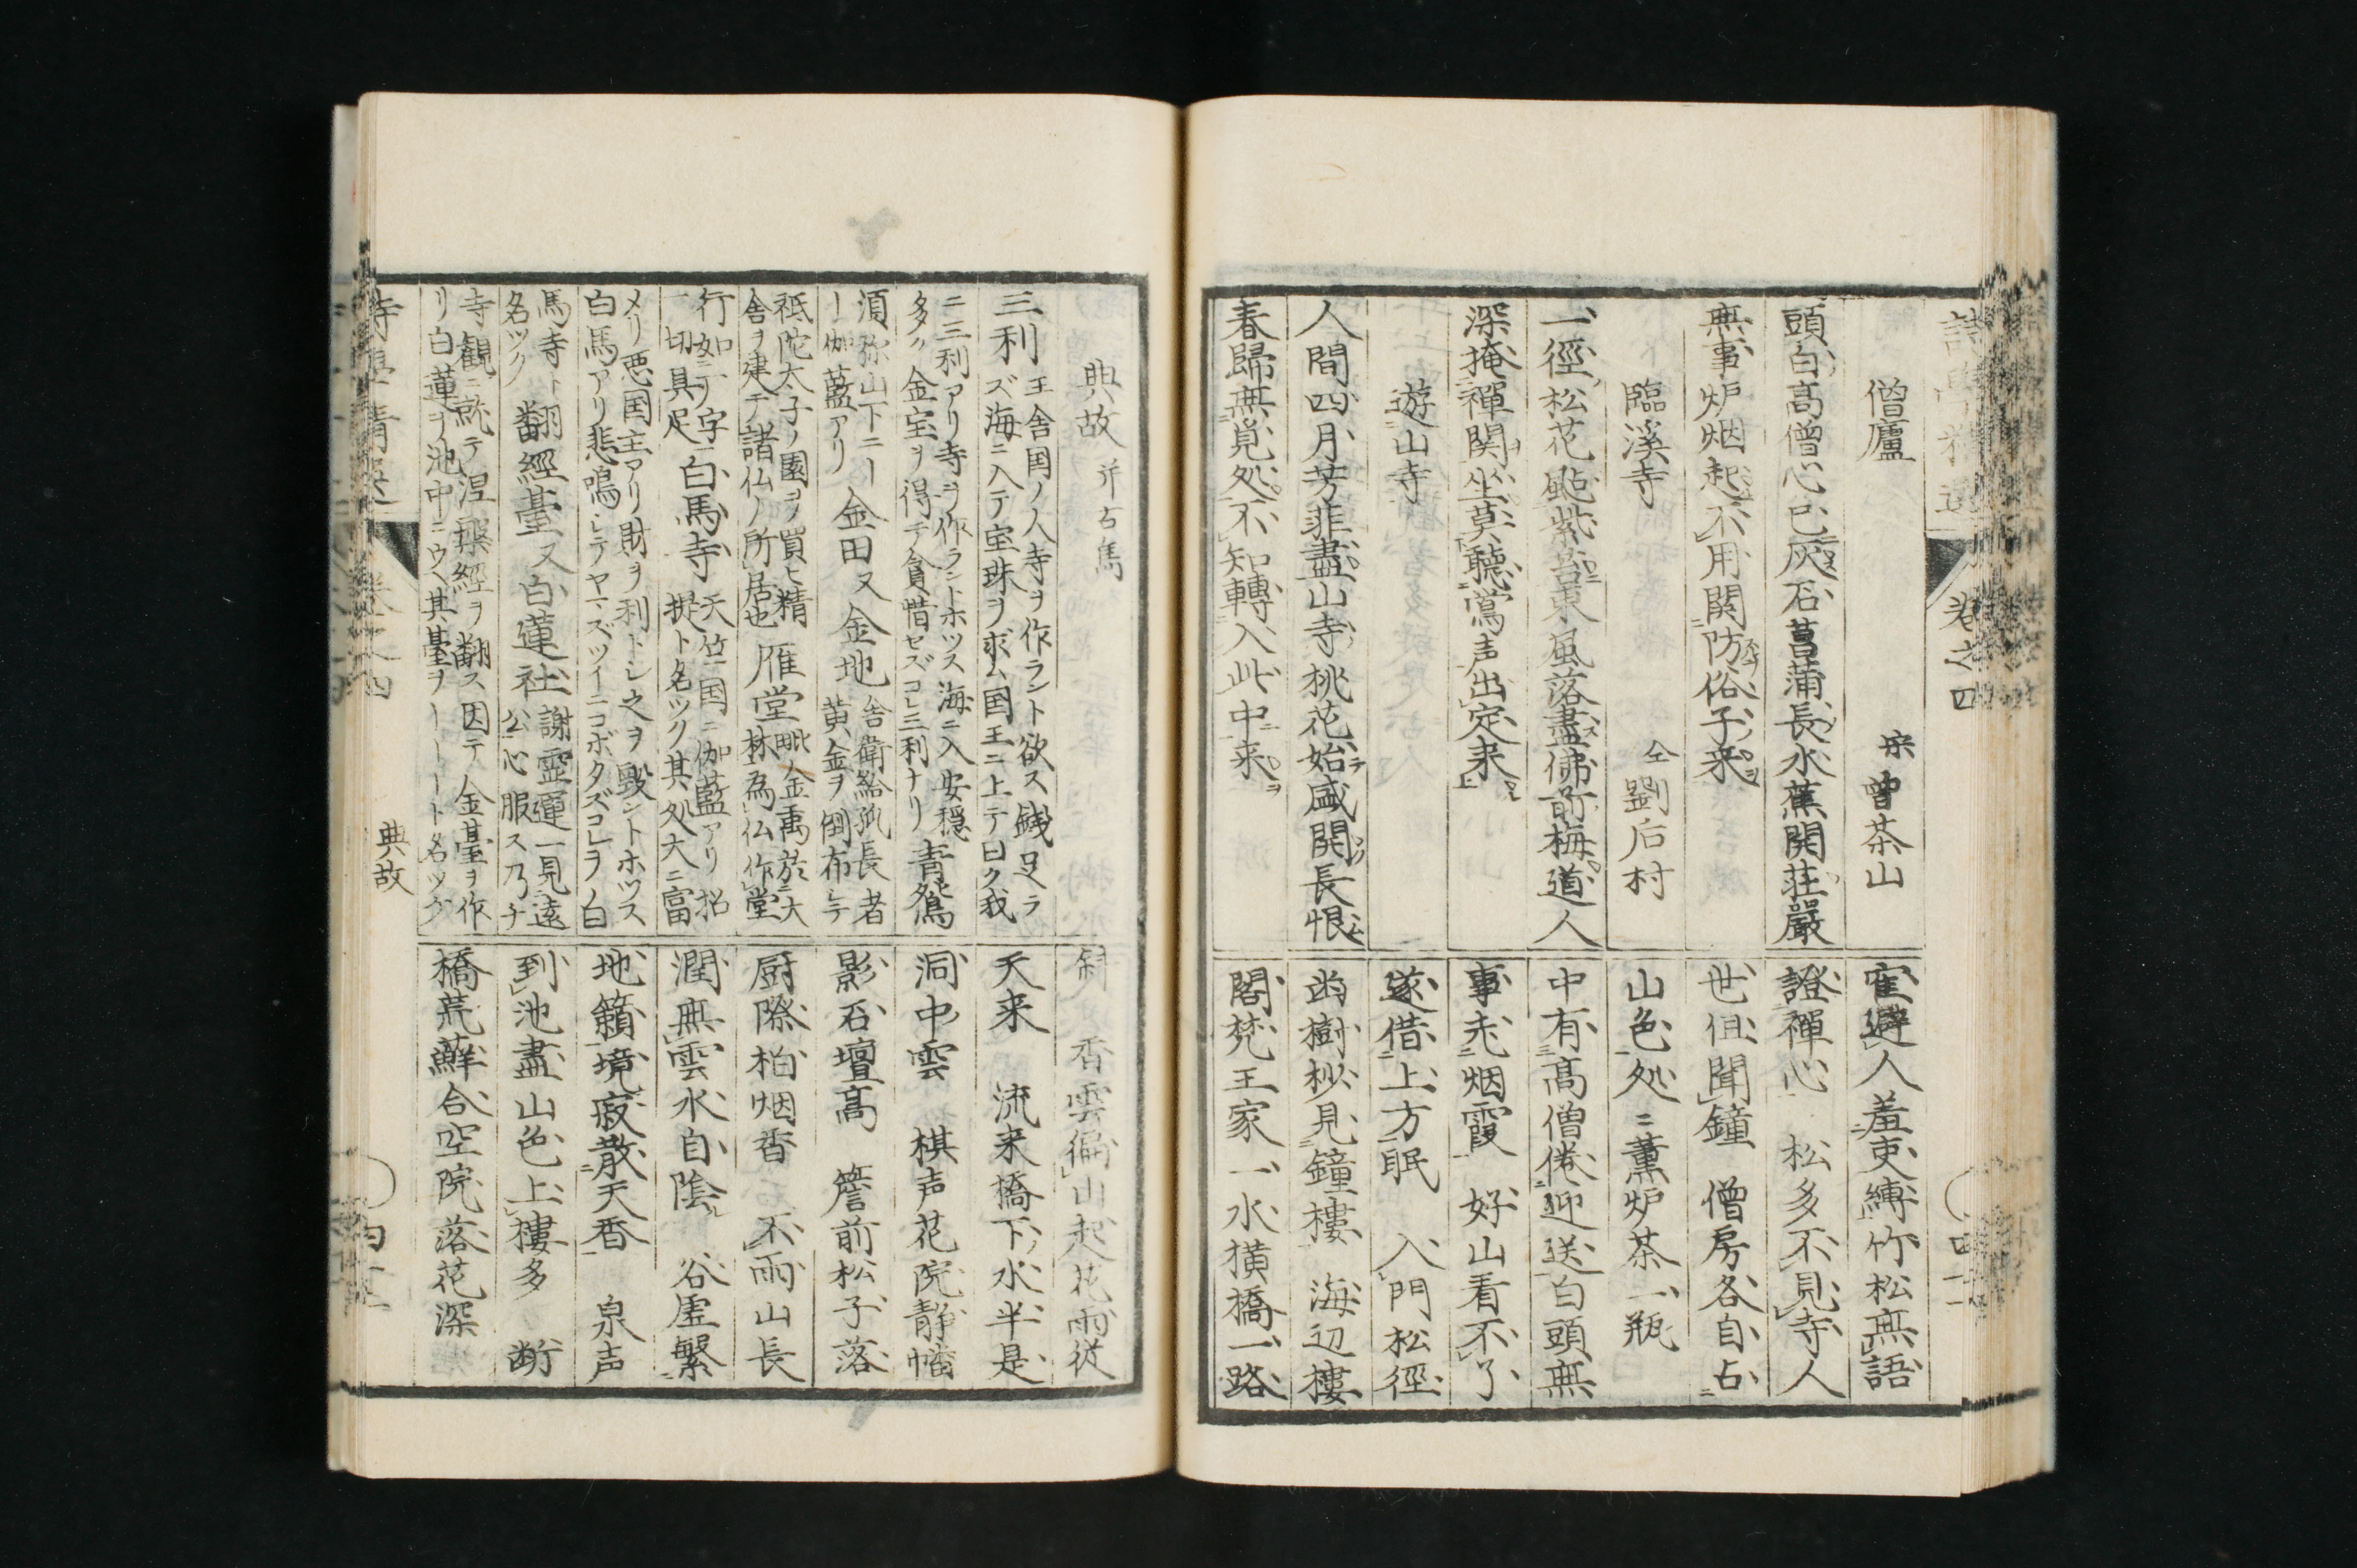 僧廬　宋　曽茶山
頭白高僧心已灰石菖蒲長水蕉開荘嚴
無事炉烟起不用関防俗子来
臨溪寺　仝　劉后村
一徑松花颭紫苔東風落盡佛前梅道人
深掩禪関坐莫聽鶯声出定来
遊山寺
人間四月芳菲盡山寺桃花始盛開長恨
春歸無覓処不知轉入此中来
寉避人羞吏縛竹松無語
證禪心　松多不見寺人
世但聞鐘　僧房各自占
山色処ニ薫炉茶一瓶
中有高僧倦迎送白頭無
事老烟霞　好山看不了
遂借上方眠　入門松徑
幽樹杪見鐘樓　海辺樓
閣梵王家一水横橋一路
巻之四
典故
三利　王舎国ノ人寺ヲ作ラント欲ス銭足ラ
ズ海ニ入テ宝珠ヲ求ム国王ニ上テ曰ク我
ニ三利アリ寺ヲ作ラントホツス海ニ入安穏
多ク金宝ヲ得テ貪惜セズコレ三利ナリ　青鴛
須弥山下ニー
ー伽藍アリ　金田又金地　舎衛給孤長者
黄金ヲ側布レテ
祗陀太子ノ園ヲ買ヒ精
舎ヲ建テ諸仏ノ所居也　雁堂　毗金禹於大
林為仏作堂
行如雁字
一切具足　白馬寺　天竺国ニ伽藍アリ招
提ト名ツク其処大ニ富
メリ悪国主アリ財ヲ利トレ之ヲ毀ントホツス
白馬アリ悲鳴レテヤマズツイニコボタズコレヲ白
馬寺ト
名ツク　翻經臺又白蓮社　謝霊運一見遠
公心服ス乃チ
寺観ニ就テ涅槃經ヲ翻ス因テ金臺ヲ作
リ白蓮ヲ池中ニウヘ其臺ヲーーーート名ツク
香雲徧山起花雨從
天来　流来橋下水半是
洞中雲　棋声花院静幡
影石壇高　簷前松子落
厨際柏烟香　不雨山長
潤無雲水自陰　谷虚繁
地籟境寂散天香　泉声
到池盡山色上樓多　断
橋荒蘚合空院落花深
典故